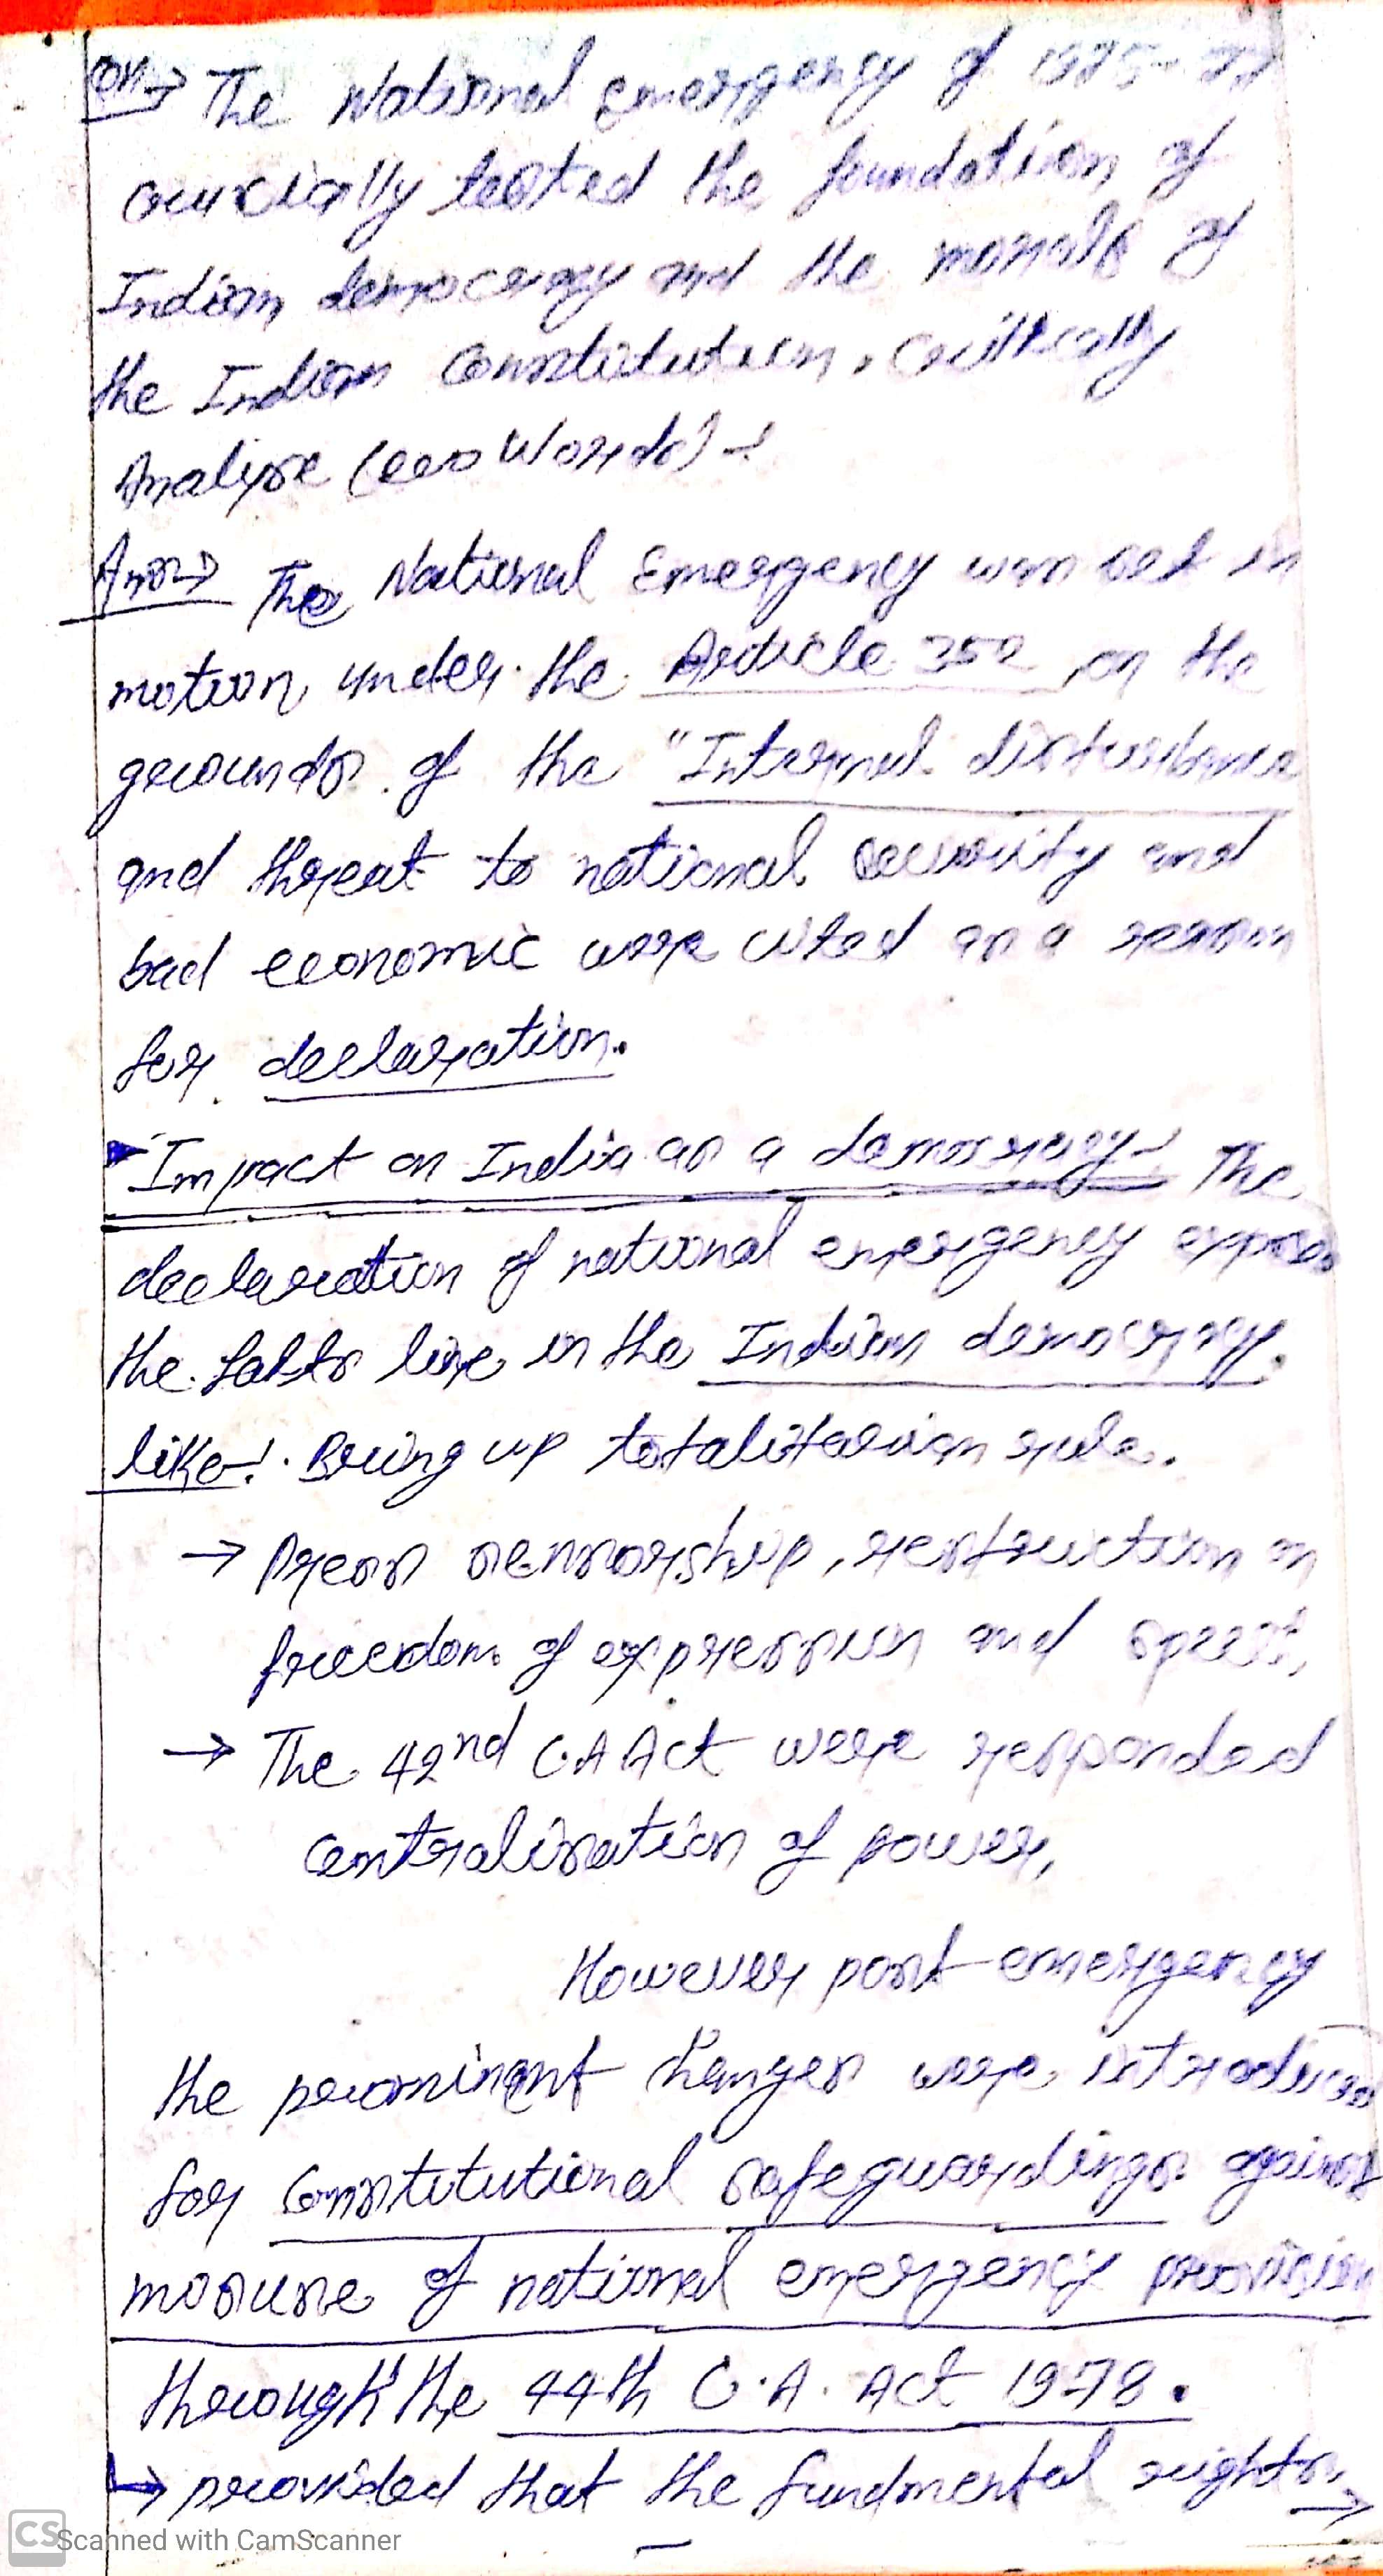 Qn→ The National emergency of 1975-77
crucially tested the foundation of
Indian democracy and the morals of
the Indian Constitution. Critically
Analyse (200 Words) -:
Ans→ The National Emergency was set in
motion under the Article 352 on the
grounds of the "Internal disturbance
and threat to national security and
bad economic were cited as a reason
for declaration.
Impact on India as a democracy:- The
declaration of national emergency exposes
the falts line in the Indian democracy.
like:- Bring up totalitarian rule.
→ Press censorship, restruction on
freedom of expression and
→ The 42nd C.A Act were responded
centralisation of power,
However post emergency
the prominent changes were introduced
for Constitutional safeguardings against
mosuse of national emergency provision
through the 44th C.A. Act 1978.
↳ provided that the fundmental rights →
CS Scanned with CamScanner